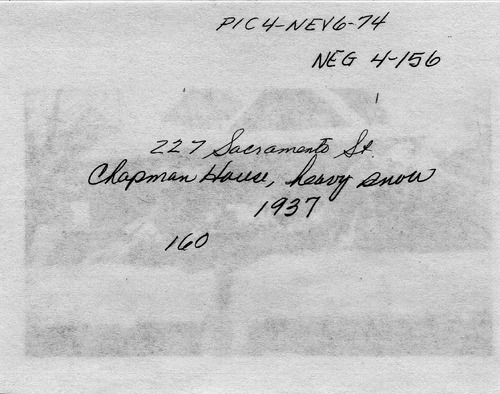 PIC 4-NEV6-74
NEG 4-156
227 Sacramento St.
Chapman House, heavy snow
1937
160